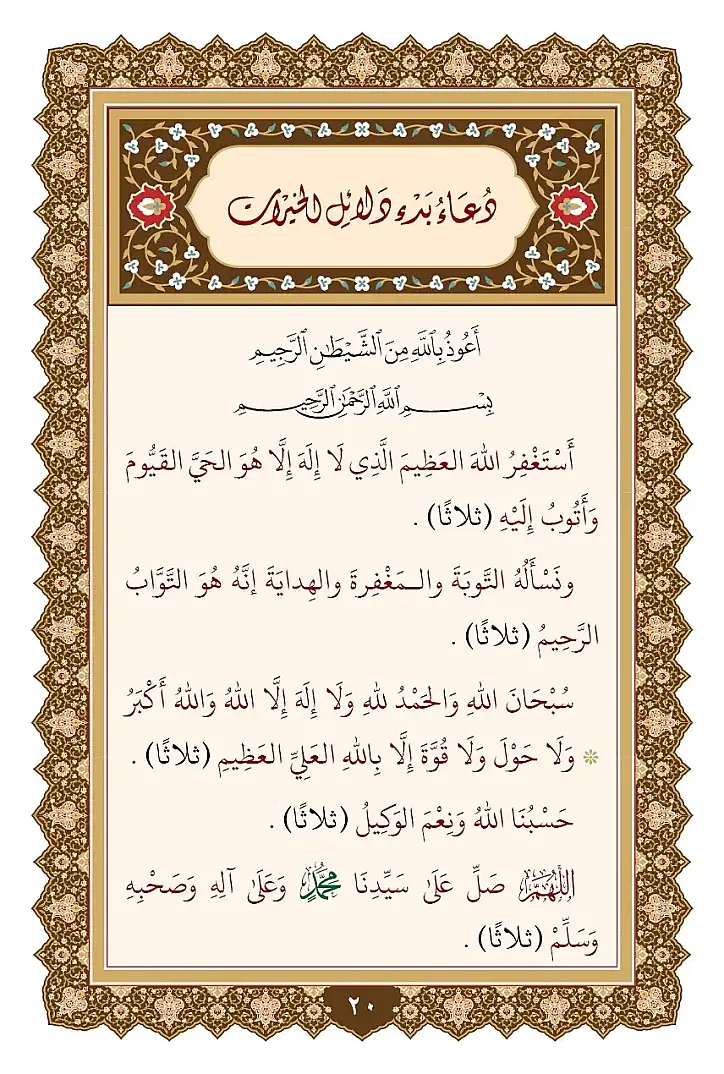 دُعَاءُ بَدْءِ دَلَائِلِ الخَيْرَاتِ
أَعُوذُ بِٱللَّهِ مِنَ ٱلشَّيْطَٰنِ ٱلرَّجِيمِ
بِسْمِ ٱللَّهِ ٱلرَّحْمَٰنِ ٱلرَّحِيمِ
أَسْتَغْفِرُ اللهَ العَظِيمَ الَّذِي لَا إِلَهَ إِلَّا هُوَ الحَيَّ القَيُّومَ
وَأَتُوبُ إِلَيْهِ (ثلاثًا) .
ونَسْأَلُهُ التَّوبَةَ والـمَغْفِرةَ والهِدايَةَ إنَّهُ هُوَ التَّوَّابُ
الرَّحِيمُ (ثلاثًا) .
سُبْحَانَ اللهِ وَالحَمْدُ للهِ وَلَا إِلَهَ إِلَّا اللهُ وَاللهُ أَكْبَرُ
❊ وَلَا حَوْلَ وَلَا قُوَّةَ إِلَّا بِاللهِ العَلِيِّ العَظِيمِ (ثلاثًا) .
حَسْبُنَا اللهُ وَنِعْمَ الوَكِيلُ (ثلاثًا) .
اللَّهُمَّ صَلِّ عَلَىٰ سَيِّدِنَا مُحَمَّدٍ وَعَلَىٰ آلِهِ وَصَحْبِهِ
وَسَلِّمْ (ثلاثًا) .
٢٠